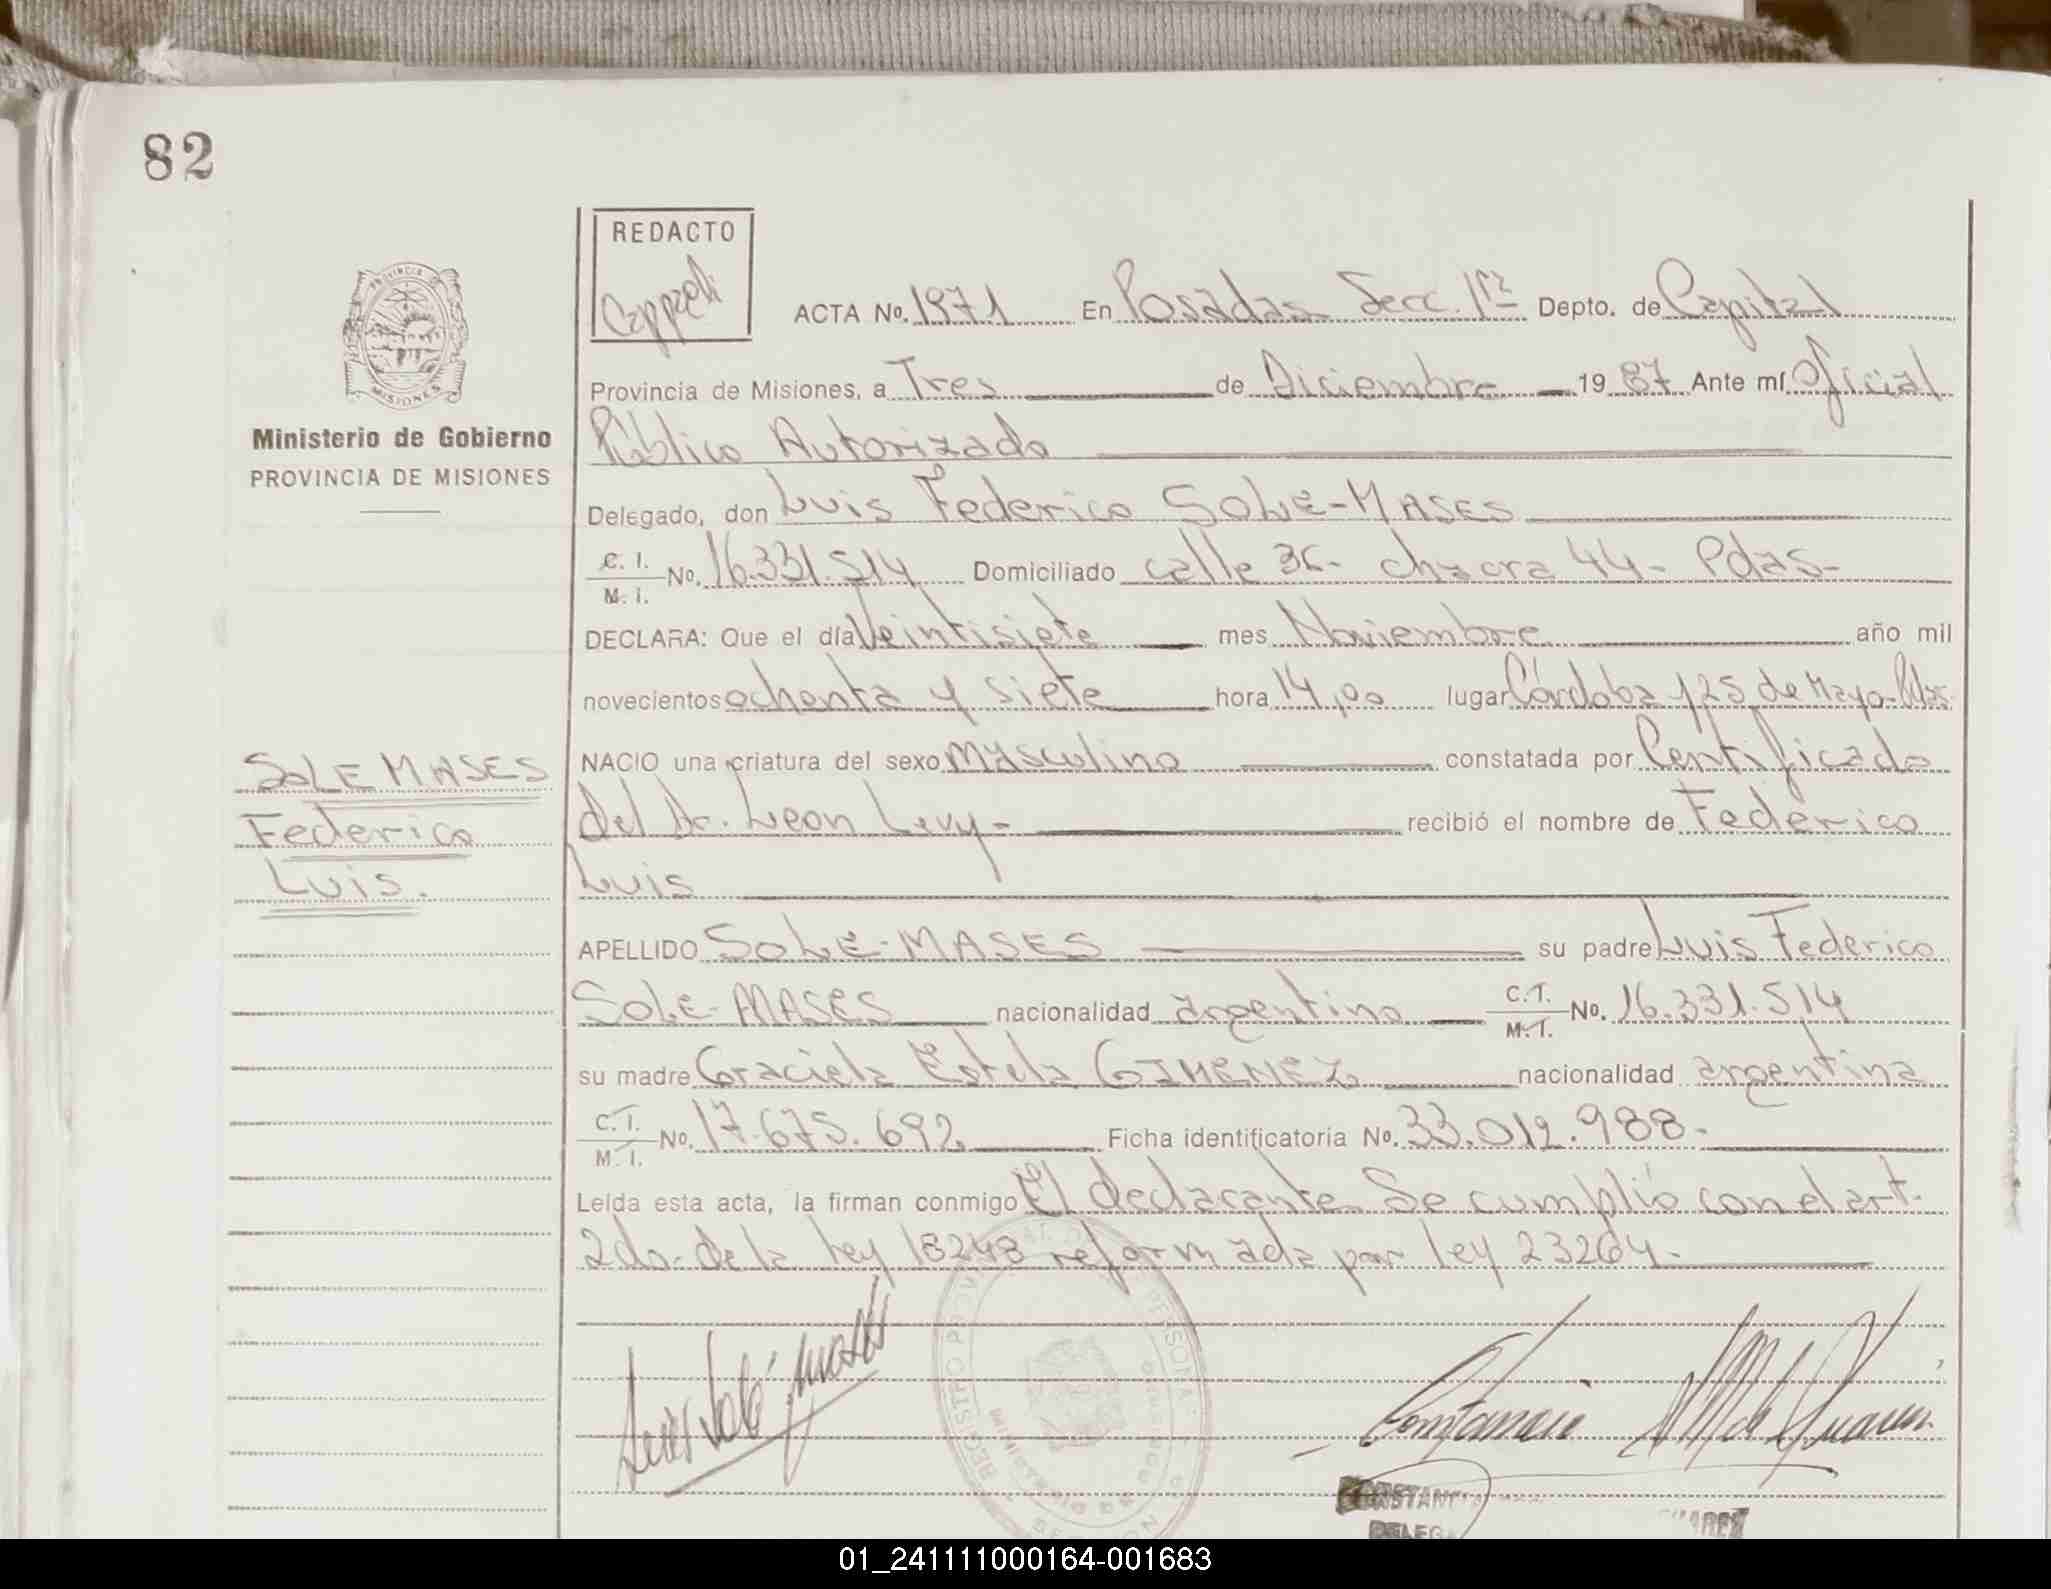 82
REDACTO
PROVINCIA
MISIONES
Ministerio de Gobierno
PROVINCIA DE MISIONES
ACTA No. 1971 En Posadas Secc. 1ra Depto. de Capital
Provincia de Misiones, a Tres de Diciembre 19 87 Ante mí Oficial
Público Autorizado
Delegado, don Luis Federico SOLE-MASES
C. I.
M. I. No. 16.331.514 Domiciliado calle 36- chacra 44- Pdas-
DECLARA: Que el día Veintisiete mes Noviembre año mil
novecientos ochenta y siete hora 14,00 lugar Córdoba y 25 de Mayo-Pdas-
NACIO una criatura del sexo masculino constatada por Certificado
del Dr. Leon Levy- recibió el nombre de Federico
Luis
SOLE MASES
Federico
Luis.
APELLIDO SOLE-MASES su padre Luis Federico
SOLE-MASES nacionalidad argentino C.I.
M.I. No. 16.331.514
su madre Graciela Estela GIMENEZ nacionalidad argentina
C.I.
M.I. No. 17.675.692 Ficha identificatoria No. 33.012.988-
Leída esta acta, la firman conmigo El declarante. Se cumplió con el art.
2do. de la ley 18248 reformada por ley 23264-
Luis Solé Masés
01_241111000164-001683